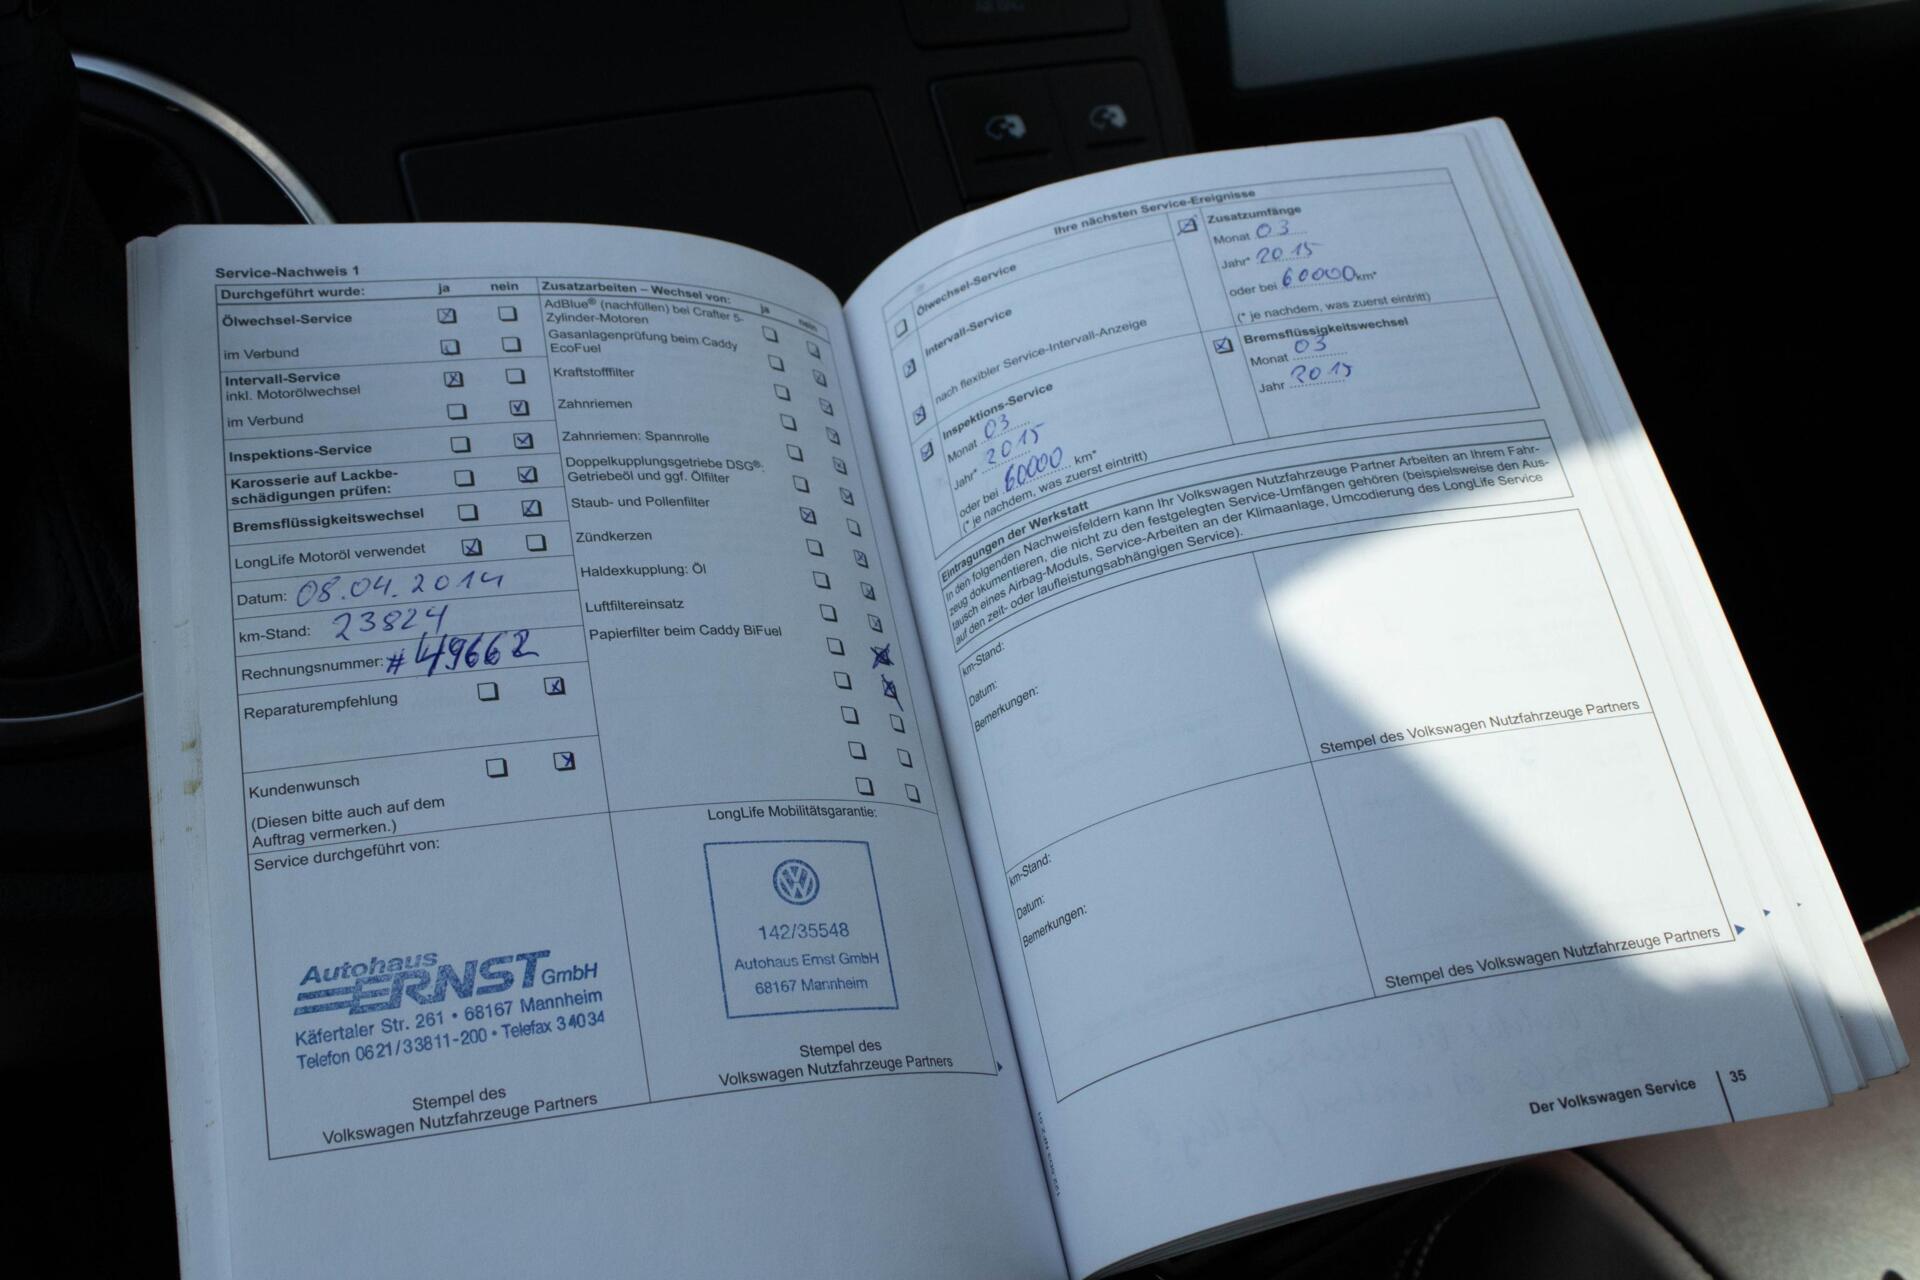 Service-Nachweis 1
Durchgeführt wurde: ja nein
Ölwechsel-Service
im Verbund
Intervall-Service
inkl. Motorölwechsel
im Verbund
Inspektions-Service
Karosserie auf Lackbe-
schädigungen prüfen:
Bremsflüssigkeitswechsel
LongLife Motoröl verwendet
Datum: 08.04.2014
km-Stand: 23824
Rechnungsnummer: #49662
Reparaturempfehlung
Kundenwunsch
(Diesen bitte auch auf dem
Auftrag vermerken.)
Service durchgeführt von:
Autohaus
ERNST GmbH
Käfertaler Str. 261 • 68167 Mannheim
Telefon 0621/33811-200 • Telefax 34034
Stempel des
Volkswagen Nutzfahrzeuge Partners
Zusatzarbeiten – Wechsel von: ja nein
AdBlue® (nachfüllen) bei Crafter 5-
Zylinder-Motoren
Gasanlagenprüfung beim Caddy
EcoFuel
Kraftstofffilter
Zahnriemen
Zahnriemen: Spannrolle
Doppelkupplungsgetriebe DSG®:
Getriebeöl und ggf. Ölfilter
Staub- und Pollenfilter
Zündkerzen
Haldexkupplung: Öl
Luftfiltereinsatz
Papierfilter beim Caddy BiFuel
LongLife Mobilitätsgarantie:
142/35548
Autohaus Ernst GmbH
68167 Mannheim
Stempel des
Volkswagen Nutzfahrzeuge Partners
Ihre nächsten Service-Ereignisse
Ölwechsel-Service
Intervall-Service
nach flexibler Service-Intervall-Anzeige
Inspektions-Service
Monat 03
Jahr* 2015
oder bei 60000 km*
(* je nachdem, was zuerst eintritt)
Zusatzumfänge
Monat 03
Jahr* 2015
oder bei 60000 km*
(* je nachdem, was zuerst eintritt)
Bremsflüssigkeitswechsel
Monat 03
Jahr 2015
Eintragungen der Werkstatt
In den folgenden Nachweisfeldern kann Ihr Volkswagen Nutzfahrzeuge Partner Arbeiten an Ihrem Fahr-
zeug dokumentieren, die nicht zu den festgelegten Service-Umfängen gehören (beispielsweise den Aus-
tausch eines Airbag-Moduls, Service-Arbeiten an der Klimaanlage, Umcodierung des LongLife Service
auf den zeit- oder laufleistungsabhängigen Service).
km-Stand:
Datum:
Bemerkungen:
Stempel des Volkswagen Nutzfahrzeuge Partners
km-Stand:
Datum:
Bemerkungen:
Stempel des Volkswagen Nutzfahrzeuge Partners
Der Volkswagen Service 35